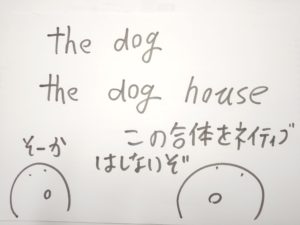 the dog
the dog house
そーか
この合体をネイティブ
はしないぞ